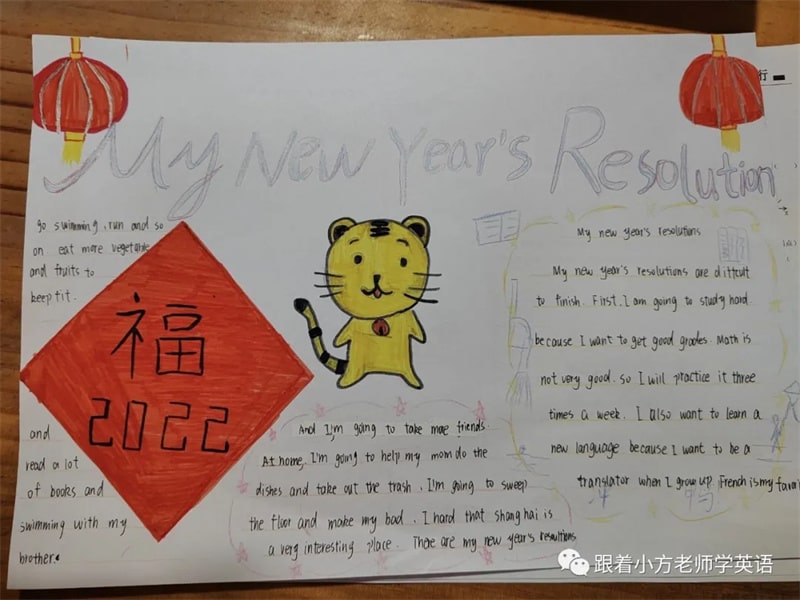 行
My New Year's Resolution
go swimming, run and so
on eat more vegetable
and fruits to
keep fit.
福
2022
and
read a lot
of books and
swimming with my
brother.
And I'm going to take more friends
At home, I'm going to help my mom do the
dishes and take out the trash. I'm going to sweep
the floor and make my bad. I hard that shanghai is
a very interesting place. There are my new year's resoultions
My new year's resolutions
My new year's resolutions are difficult
to finish. First, I am going to study hard
because I want to get good grades. Math is
not very good. so I will practice it three
times a week. I also want to learn a
new language because I want to be a
translator when I grow up. French is my favori
跟着小方老师学英语